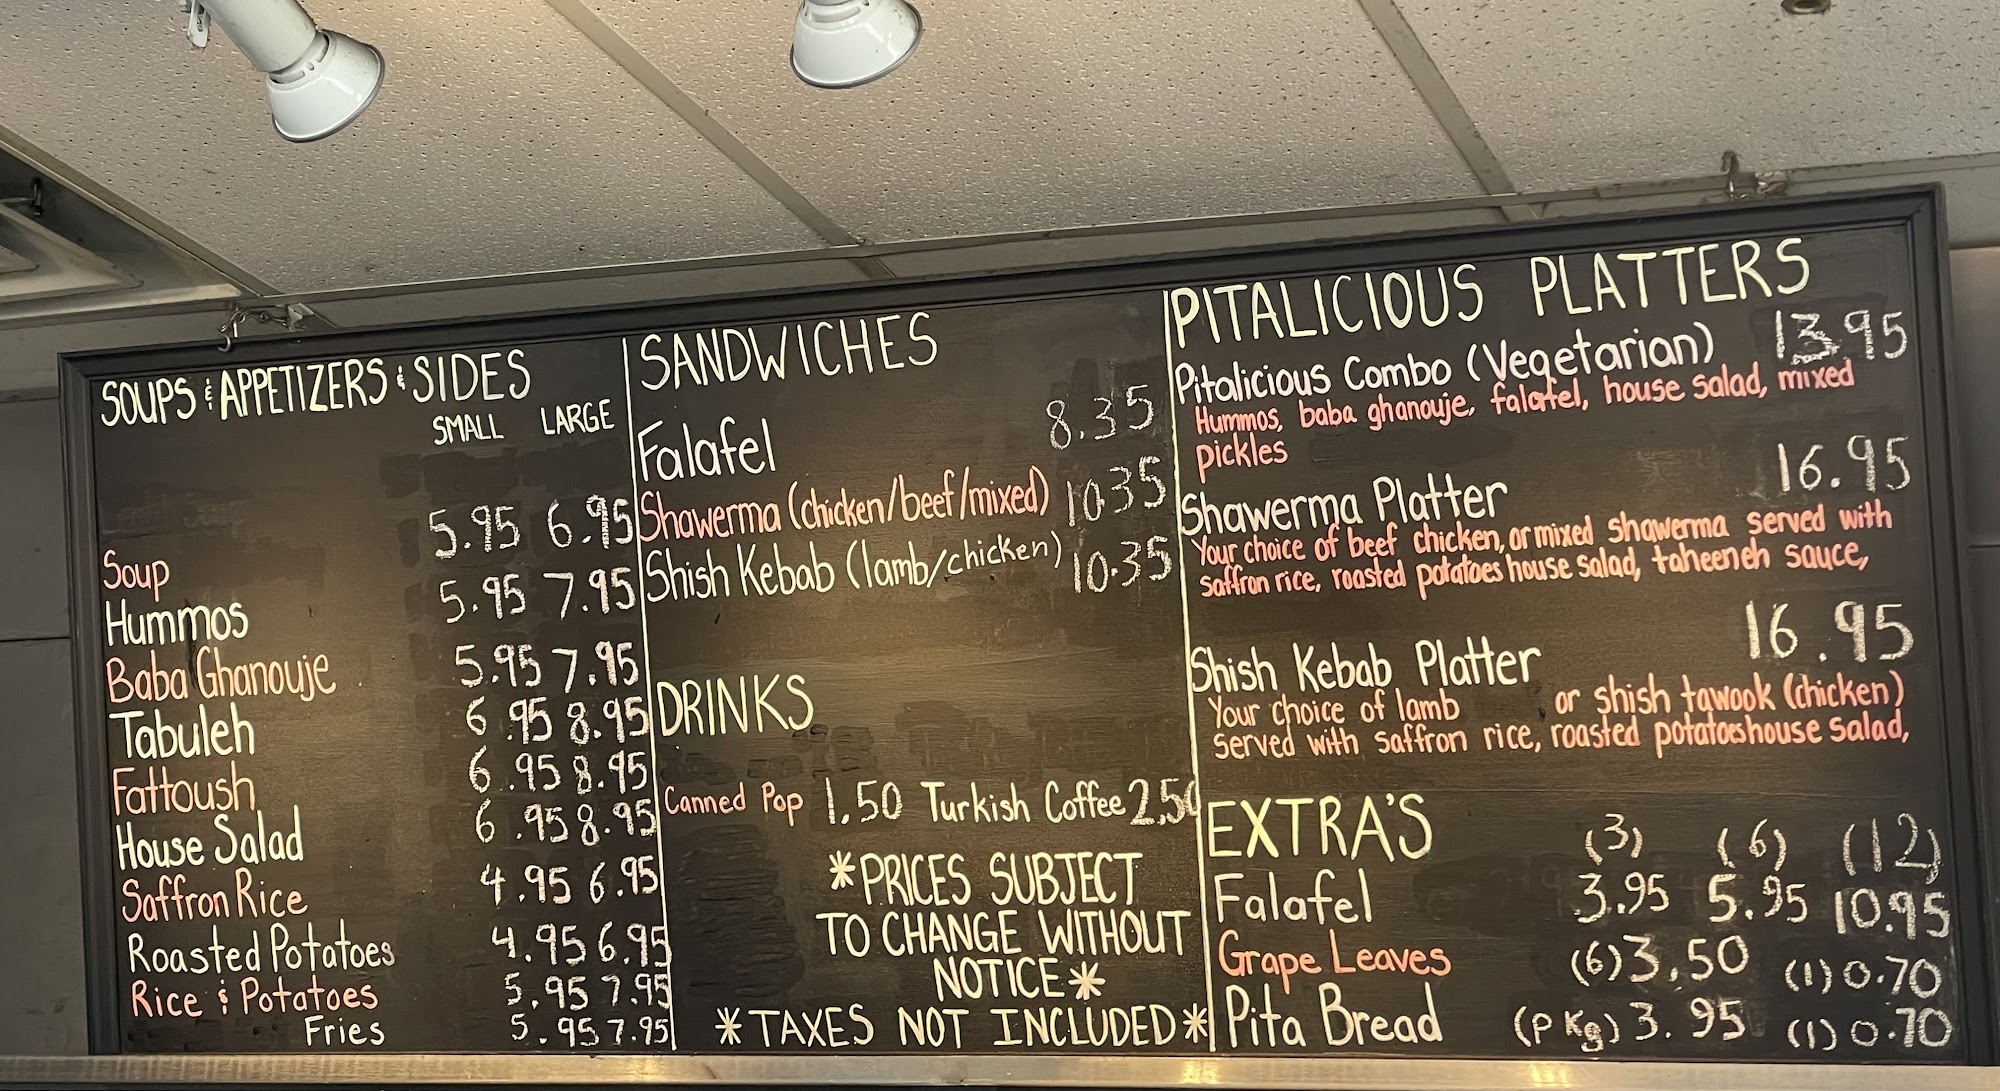 SOUPS & APPETIZERS & SIDES
SMALL LARGE
Soup 5.95 6.95
Hummos 5.95 7.95
Baba Ghanouje 5.95 7.95
Tabuleh 6.95 8.95
Fattoush 6.95 8.95
House Salad 6.95 8.95
Saffron Rice 4.95 6.95
Roasted Potatoes 4.95 6.95
Rice & Potatoes 5.95 7.95
Fries 5.95 7.95
SANDWICHES
Falafel 8.35
Shawerma (chicken/beef/mixed) 10.35
Shish Kebab (lamb/chicken) 10.35
DRINKS
Canned Pop 1.50 Turkish Coffee 2.50
*PRICES SUBJECT
TO CHANGE WITHOUT
NOTICE*
*TAXES NOT INCLUDED*
PITALICIOUS PLATTERS
Pitalicious Combo (Vegetarian) 13.95
Hummos, baba ghanouje, falafel, house salad, mixed
pickles
Shawerma Platter 16.95
Your choice of beef chicken, or mixed shawerma served with
saffron rice, roasted potatoes house salad, taheeneh sauce,
Shish Kebab Platter 16.95
Your choice of lamb or shish tawook (chicken)
served with saffron rice, roasted potatoes house salad,
EXTRA'S
(3) (6) (12)
Falafel 3.95 5.95 10.95
Grape Leaves (6) 3.50 (1) 0.70
Pita Bread (PKg) 3.95 (1) 0.70